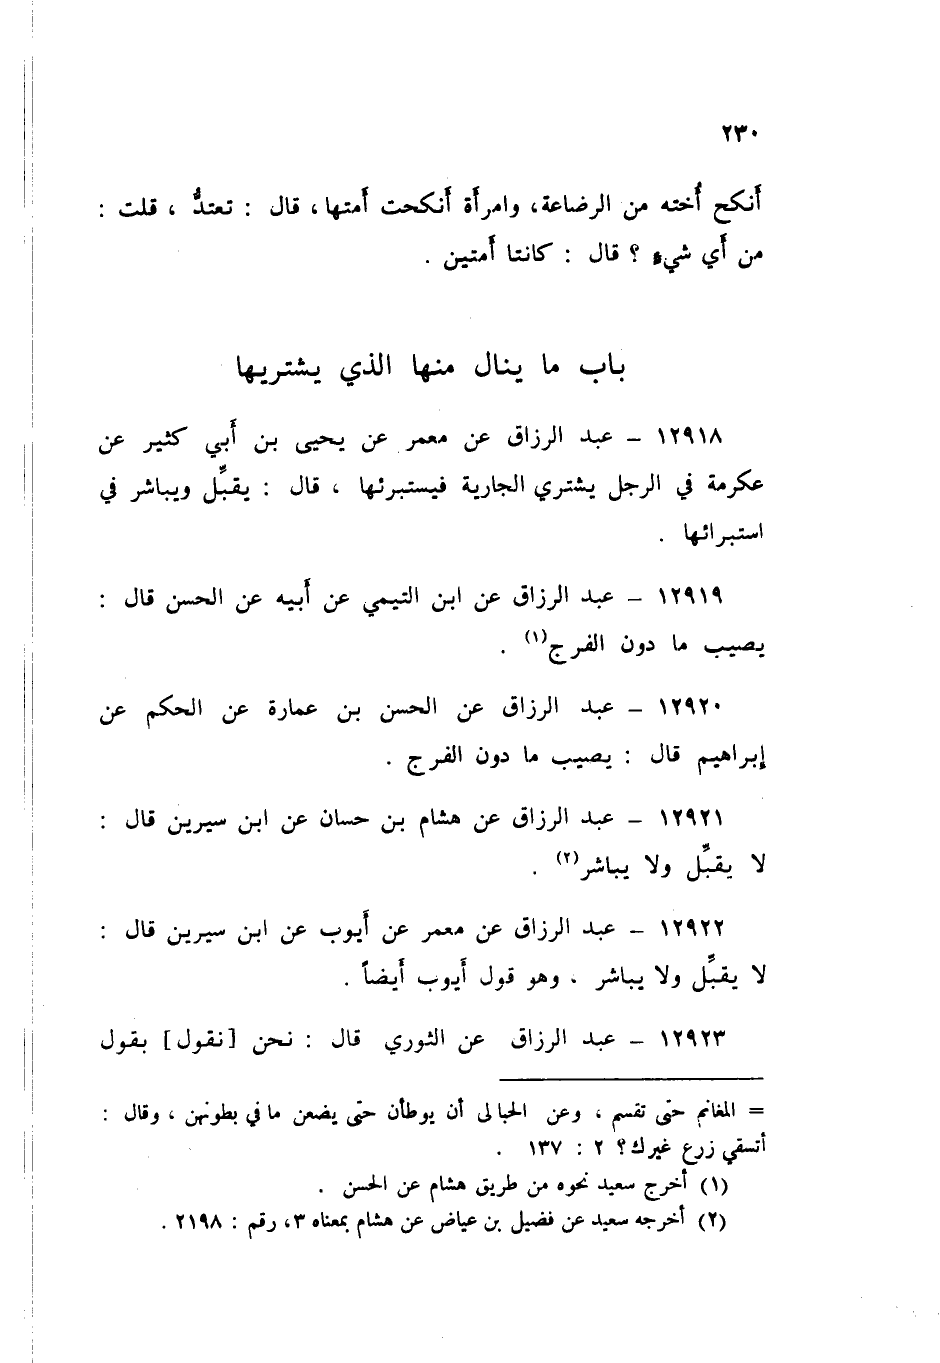 ٢٣٠
أَنكح أُخته من الرضاعة، وامرأَة أَنكحت أَمتها، قال : تعتدُّ ، قلت :
من أَي شيءٍ ؟ قال : كانتا أَمتين .
باب ما ينال منها الذي يشتريها
١٢٩١٨ – عبد الرزاق عن معمر عن يحيى بن أَبي كثير عن
عكرمة في الرجل يشتري الجارية فيستبرئها ، قال : يقبِّل ويباشر في
استبرائها .
١٢٩١٩ – عبد الرزاق عن ابن التيمي عن أَبيه عن الحسن قال :
يصيب ما دون الفرج(١) .
١٢٩٢٠ – عبد الرزاق عن الحسن بن عمارة عن الحكم عن
إبراهيم قال : يصيب ما دون الفرج .
١٢٩٢١ – عبد الرزاق عن هشام بن حسان عن ابن سيرين قال :
لا يقبِّل ولا يباشر(٢) .
١٢٩٢٢ – عبد الرزاق عن معمر عن أَيوب عن ابن سيرين قال :
لا يقبِّل ولا يباشر . وهو قول أَيوب أَيضاً .
١٢٩٢٣ – عبد الرزاق عن الثوري قال : نحن [نقول] بقول
= المغانم حتى تقسم ، وعن الحبالى أن يوطأن حتى يضعن ما في بطونهن ، وقال :
أتسقي زرع غيرك؟ ٢ : ١٣٧ .
(١) أخرج سعيد نحوه من طريق هشام عن الحسن .
(٢) أخرجه سعيد عن فضيل بن عياض عن هشام بمعناه ٣، رقم : ٢١٩٨ .